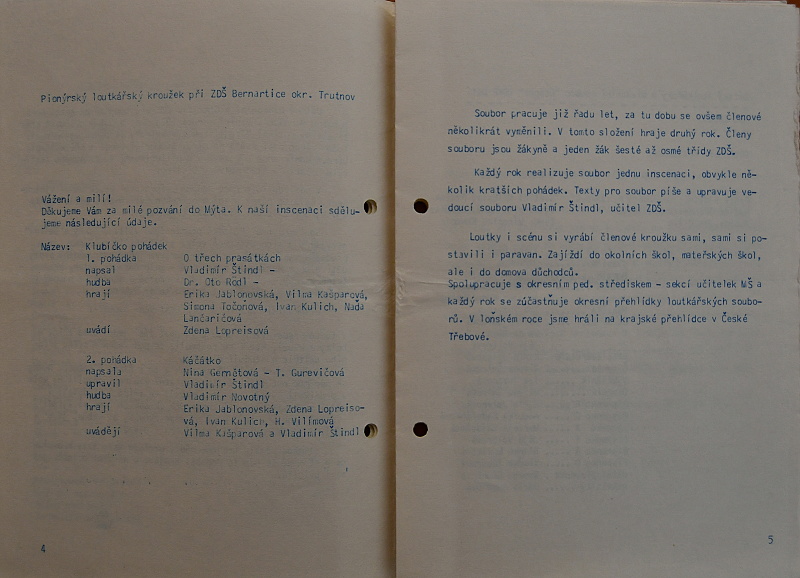 Pionýrský loutkářský kroužek při ZDŠ Bernartice okr. Trutnov
Vážení a milí!
Děkujeme Vám za milé pozvání do Mýta. K naší inscenaci sdělu-
jeme následující údaje.
Název: Klubíčko pohádek
1. pohádka O třech prasátkách
napsal Vladimír Štindl -
hudba Dr. Oto Rödl -
hrají Erika Jablonovská, Vilma Kašparová,
Simona Točoňová, Ivan Kulich, Naďa
Lančaričová
uvádí Zdena Lopreisová
2. pohádka Káčátko
napsala Nina Gernětová - T. Gurevičová
upravil Vladimír Štindl
hudba Vladimír Novotný
hrají Erika Jablonovská, Zdena Lopreiso-
vá, Ivan Kulich, H. Vilímová
uvádějí Vilma Kašparová a Vladimír Štindl
4
Soubor pracuje již řadu let, za tu dobu se ovšem členové
několikrát vyměnili. V tomto složení hraje druhý rok. Členy
souboru jsou žákyně a jeden žák šesté až osmé třídy ZDŠ.
Každý rok realizuje soubor jednu inscenaci, obvykle ně-
kolik kratších pohádek. Texty pro soubor píše a upravuje ve-
doucí souboru Vladimír Štindl, učitel ZDŠ.
Loutky i scénu si vyrábí členové kroužku sami, sami si po-
stavili i paravan. Zajíždí do okolních škol, mateřských škol,
ale i do domova důchodců.
Spolupracuje s okresním ped. střediskem - sekcí učitelek MŠ a
každý rok se zúčastňuje okresní přehlídky loutkářských soubo-
rů. V loňském roce jsme hráli na krajské přehlídce v České
Třebové.
5